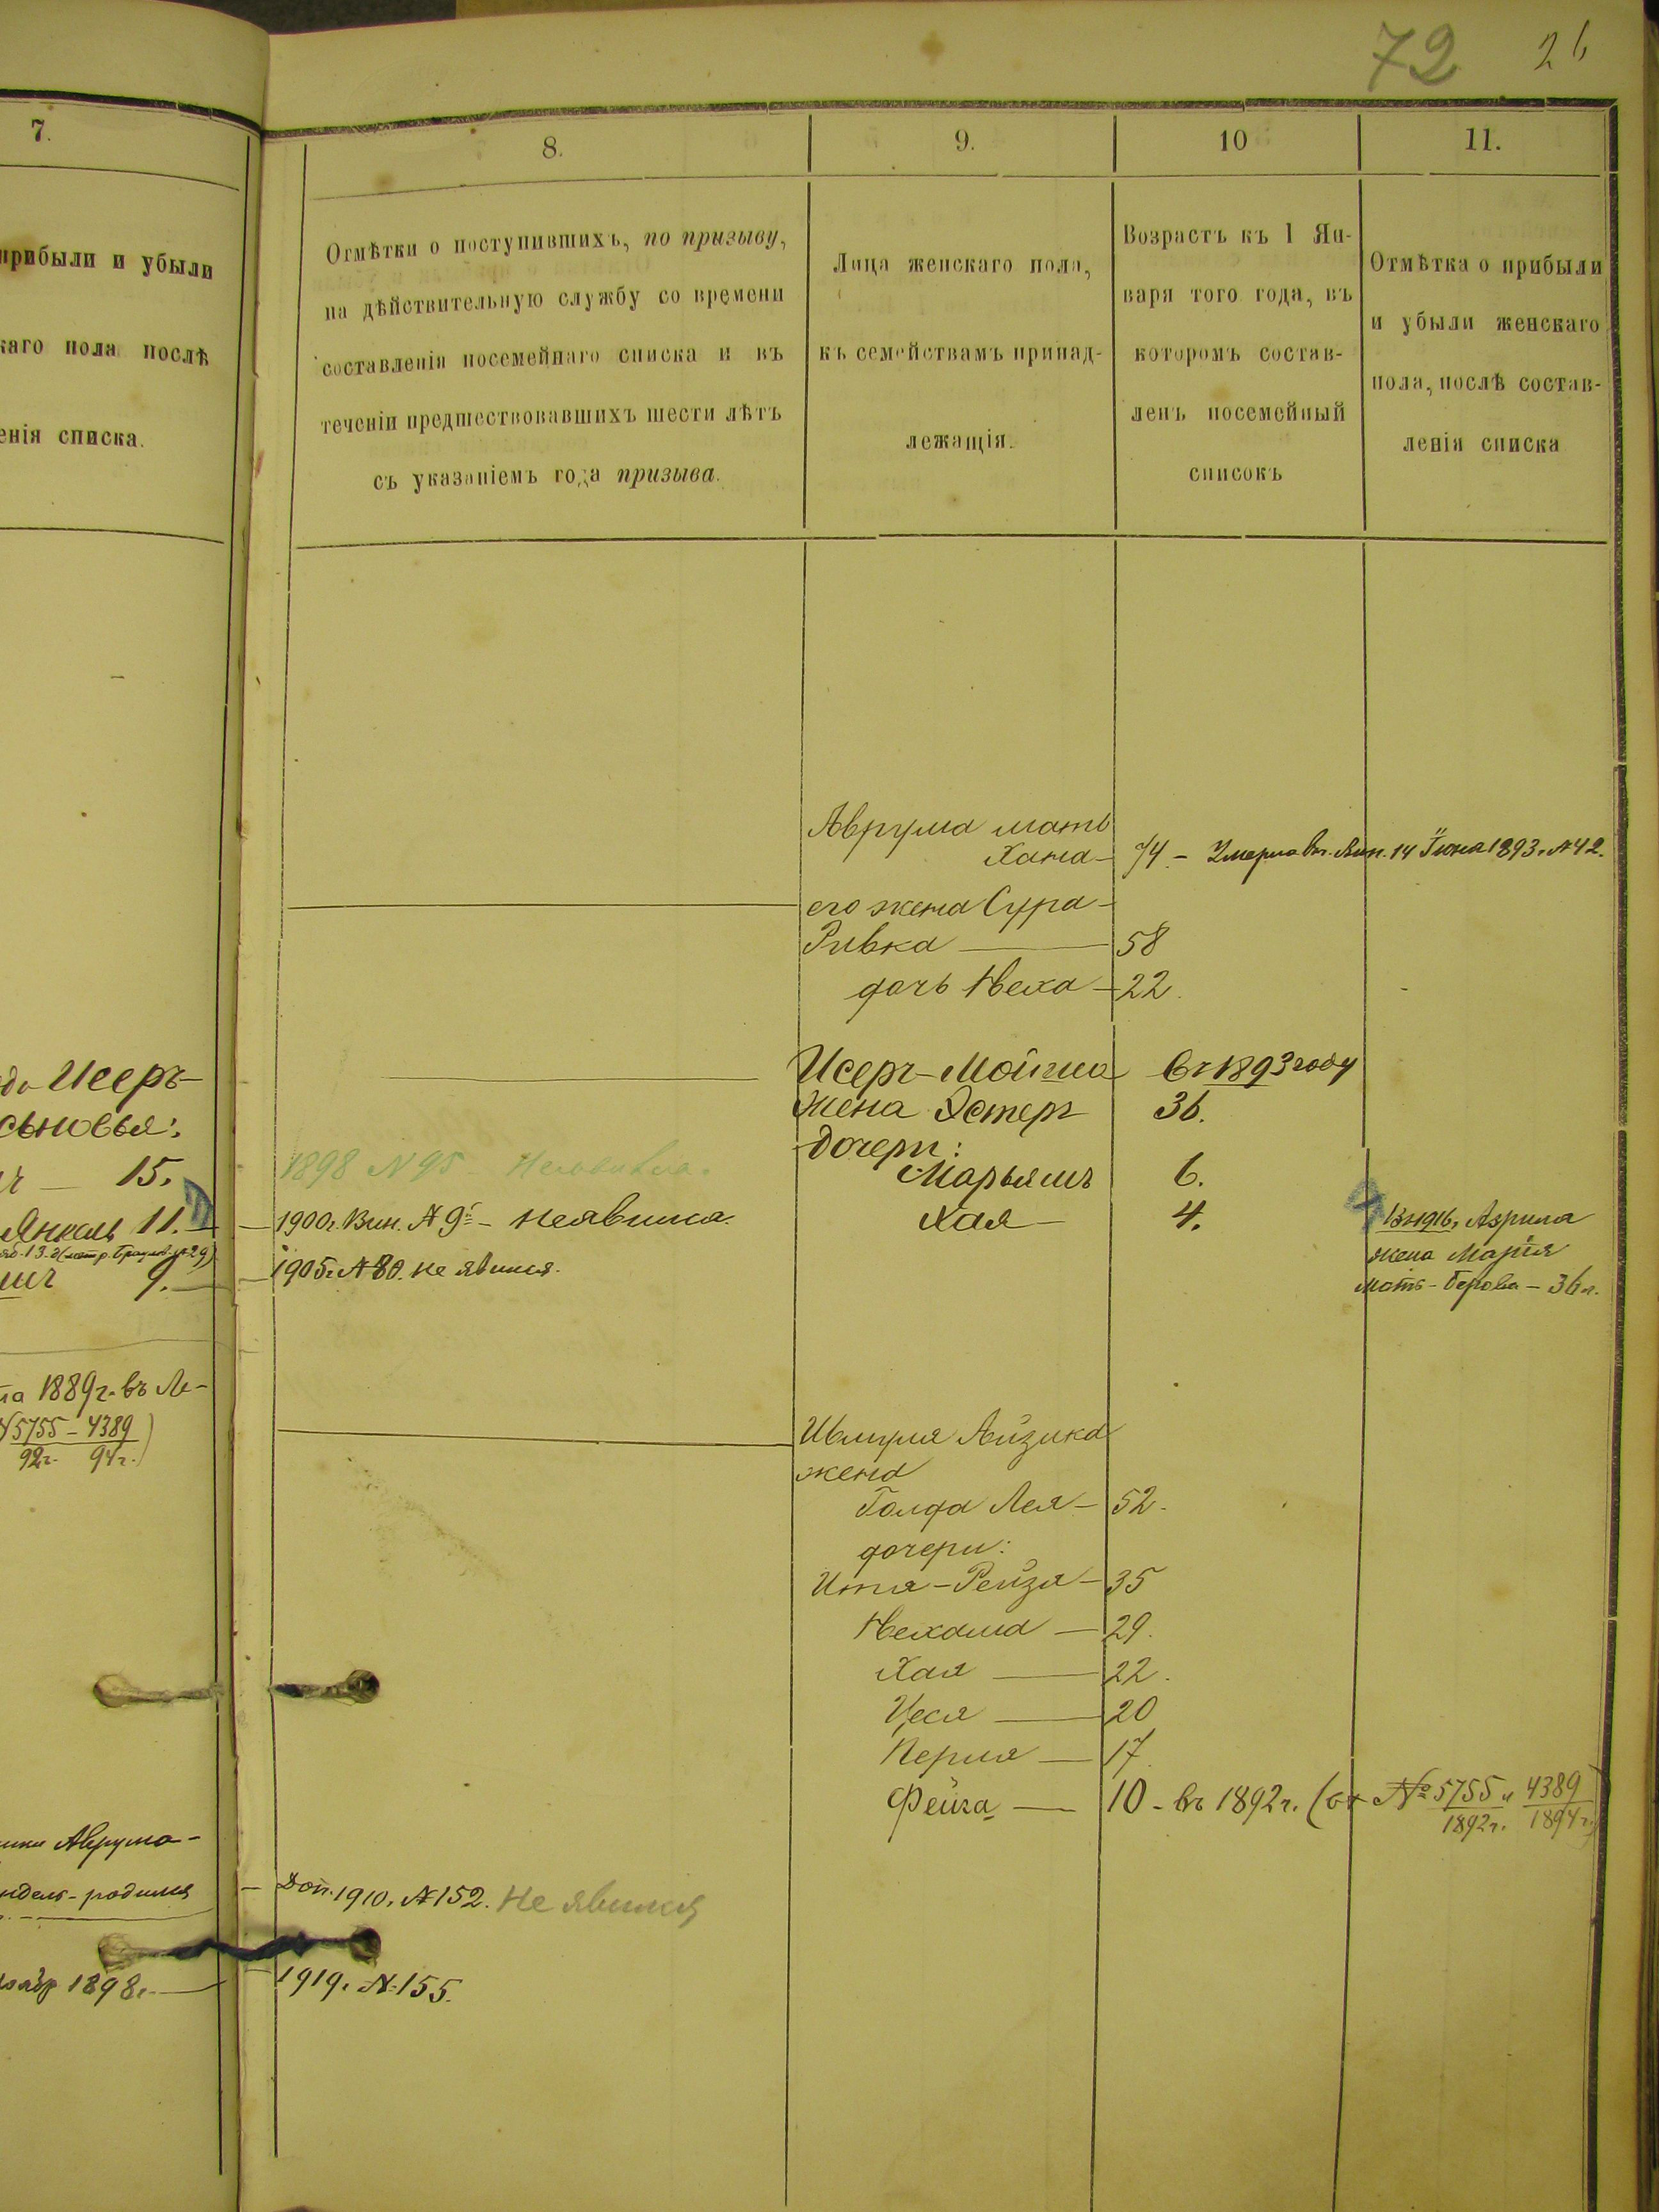 72 26
7.
прибыли и убыли
каго пола послѣ
енія списка.
Исеръ-
сыновья:
15.
Янкель 11.
9.
1889 г. въ Ле-
5755 - 4389
92 г. 94 г.
Аврума-
родился
1898 г.
8.
Отмѣтки о поступившихъ, по призыву,
на дѣйствительную службу со времени
составленія посемейнаго списка и въ
теченіи предшествовавшихъ шести лѣтъ
съ указаніемъ года призыва.
1898 N 95
1900 г. Вин. № 9 - неявился.
1905 г. № 80. не явился.
Доп. 1910 г. № 152. Не явился
1919 г. № 155.
9.
Лица женскаго пола,
къ семействамъ принад-
лежащія.
Аврума мать
Хана -
его жена Сура -
Ривка
дочь Неха -
Исеръ-Мойша
жена Эстеръ
дочери:
Марьямъ
Хая -
Ившия Айзика
жена
Голда Лея -
дочери:
Итя - Рейзя -
Нехама -
Хая
Цеся
Перля
Фейга
10
Возрастъ къ 1 Ян-
варя того года, въ
которомъ состав-
ленъ посемейный
списокъ
74 - Умерла въ Вин. 14 Іюня 1893 г. № 42.
58
22.
въ 1893 году
36.
6.
4.
52.
35
29.
22.
20
17.
10 - въ 1892 г. (от № 5755 и 4389
1892 г. 1894 г.)
11.
Отмѣтка о прибыли
и убыли женскаго
пола, послѣ состав-
ленія списка
Въ 1916 г. Азрила
жена Марія
36 л.